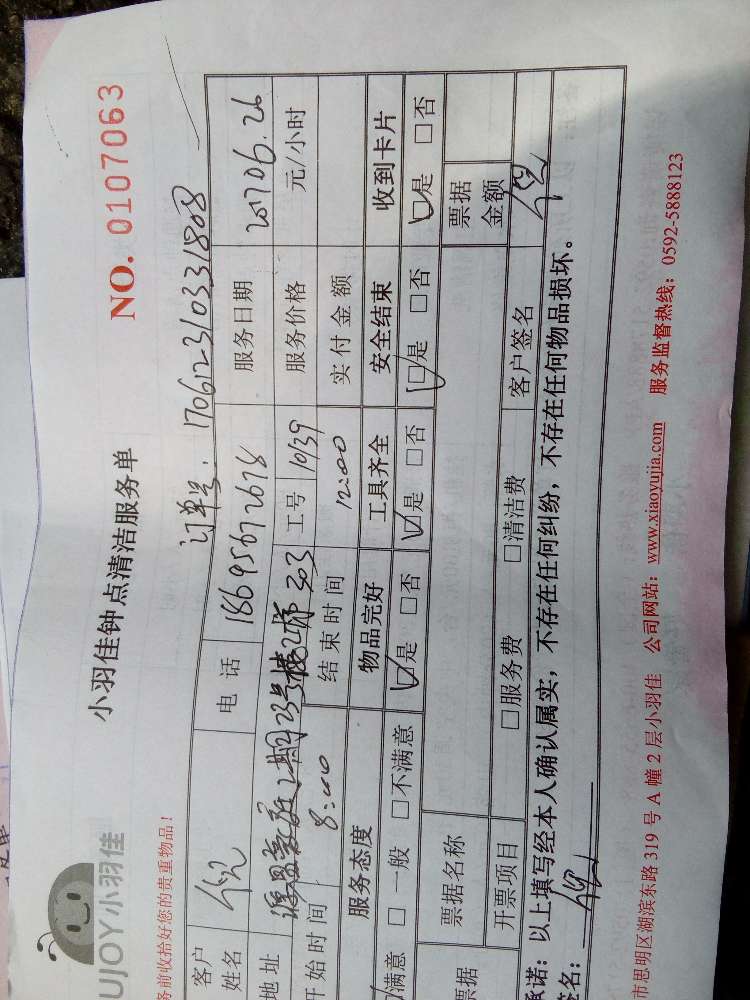 UJOY小羽佳
小羽佳钟点清洁服务单
NO. 0107063
务前收拾好您的贵重物品!
订单号: 170612310331808
客户姓名
电话 18695672678
服务日期 201706.26
地址 2期23号楼2梯303
工号 10139
服务价格 元/小时
开始时间 8:00
结束时间 12:00
实付金额
服务态度 物品完好 工具齐全 安全结束 收到卡片
满意 □一般 □不满意 □是 □否 □是 □否 □是 □否 □是 □否
票据 票据名称 票据金额
开票项目 □服务费 □清洁费 客户签名
承诺:以上填写经本人确认属实,不存在任何纠纷,不存在任何物品损坏。
签名:
市思明区湖滨东路 319 号 A 幢 2 层小羽佳 公司网站:www.xiaoyujia.com 服务监督热线:0592-5888123